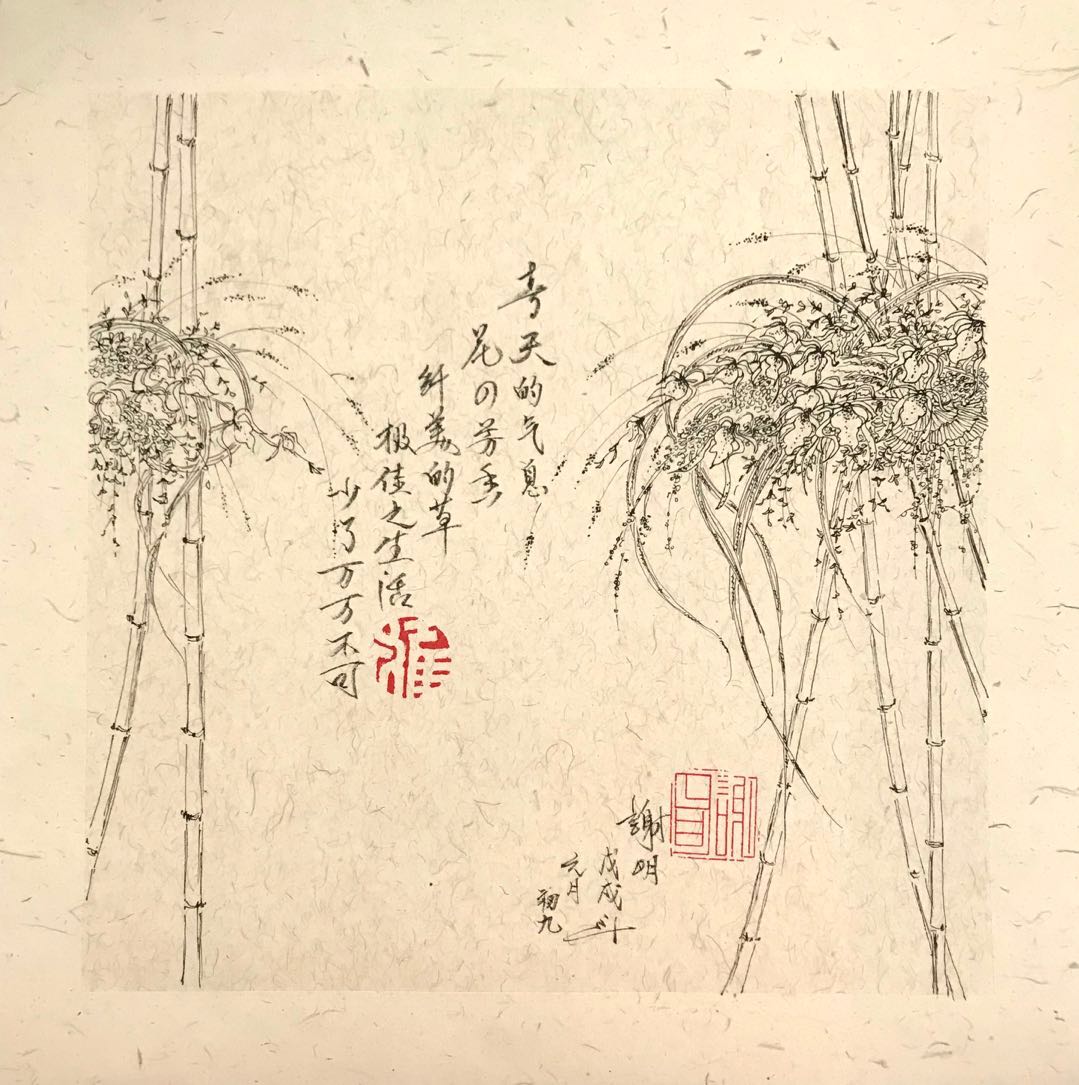 春天的气息
花の芳香
纤美的草
极佳之生活
少了万万不可
謝明
戊戌年
元月
初九